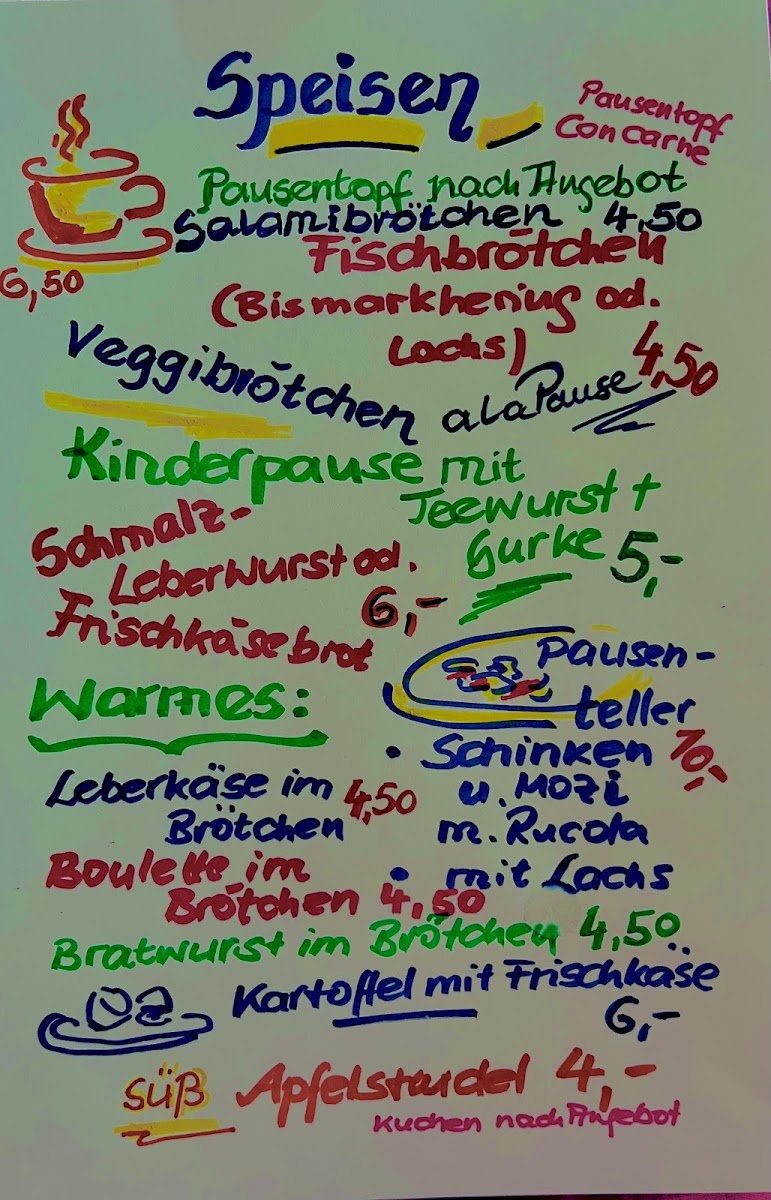 Speisen
Pausentopf
Con carne
Pausentopf nach Angebot
6,50
Salamibrötchen 4,50
Fischbrötchen
(Bismarkhering od.
Lachs) 4,50
Veggibrötchen a la Pause
Kinderpause mit
Teewurst +
Gurke 5,-
Schmalz-
Leberwurst od.
Frischkäsebrot 6,-
Pausen-
teller
• Schinken 10,-
u. Mozi
m. Rucola
• mit Lachs
Warmes:
Leberkäse im
Brötchen 4,50
Boulette im
Brötchen 4,50
Bratwurst im Brötchen 4,50
Kartoffel mit Frischkäse
6,-
süß Apfelstrudel 4,-
Kuchen nach Angebot